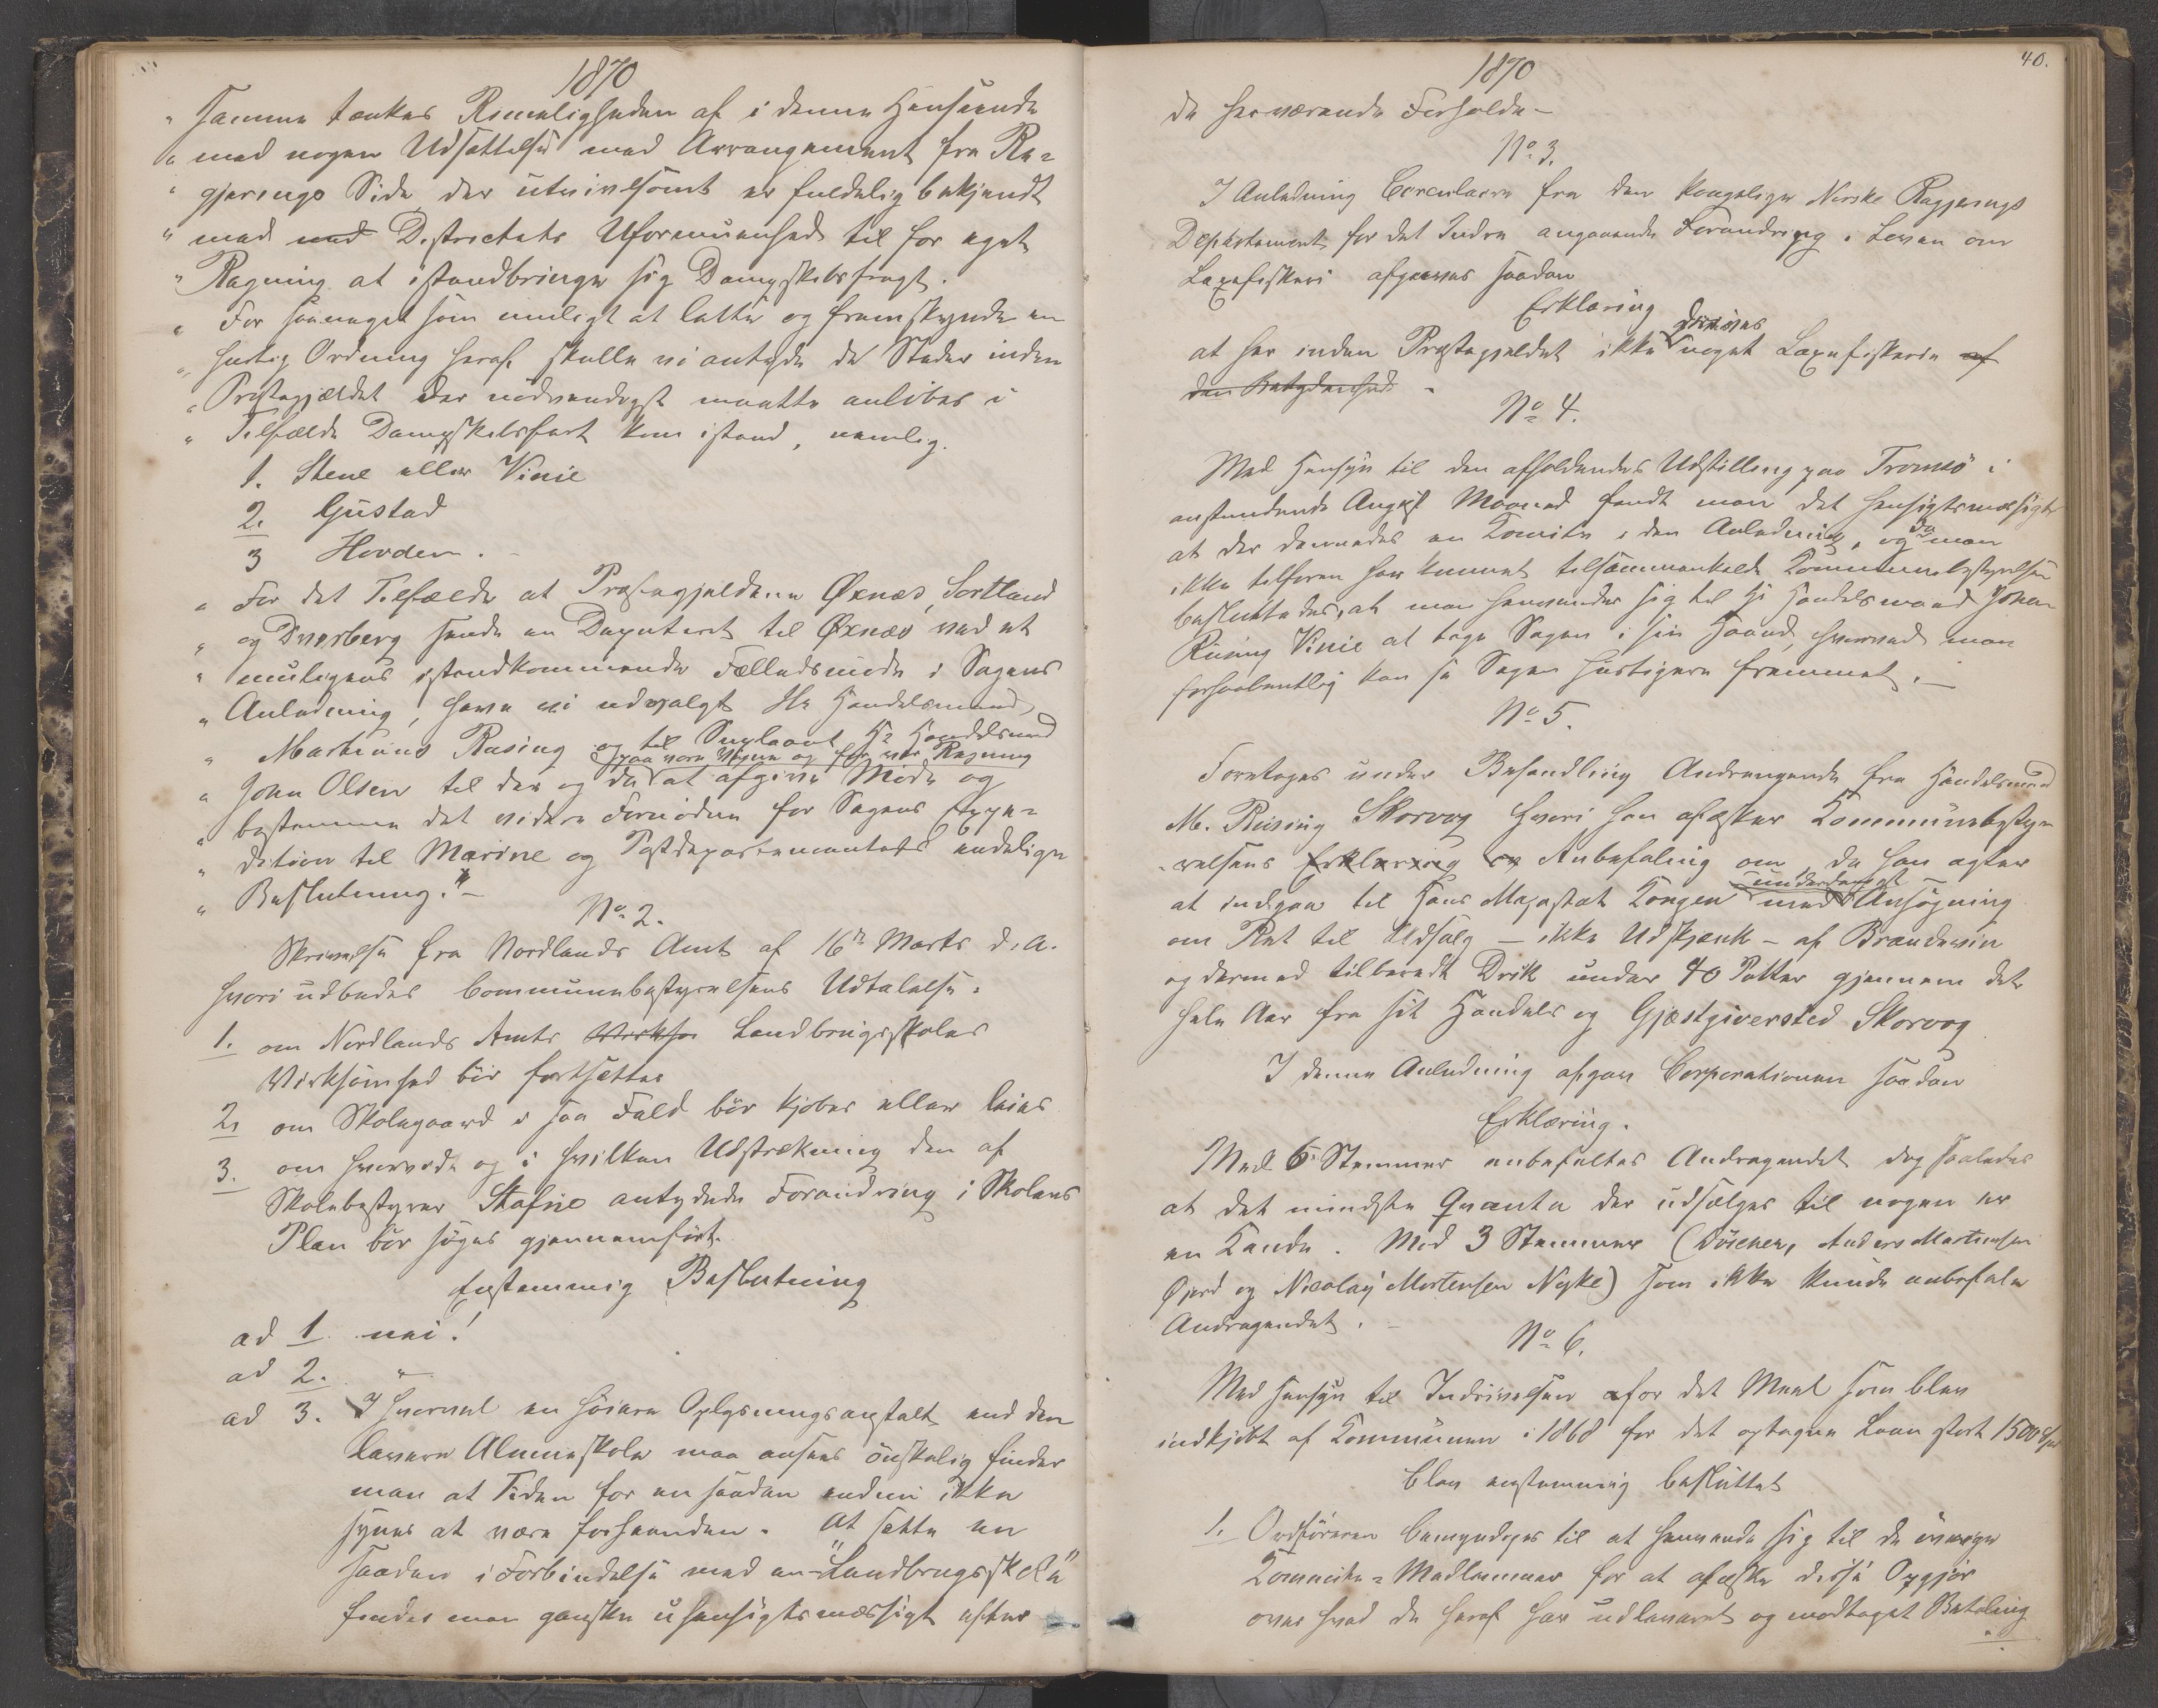 1870
" samme tænkes Rimeligheden af i denne Henseende
" med nogen Udsættelse med Arrangement fra Re-
" gjerings Side, der utvivlsomt er fuldelig bekjendt
" med med Districtets Uformuenhed til for eget
" Regning at istandbringe sig Dampskibsfragt.
" For saameget som muligt at lette og fremskynde en
" hurtig Ordning heraf skulle vi antyde de Steder inden
" Præstegjældet der nødvendigst maatte anløbes i
" Tilfælde Dampskibsfart kom istand, nemlig.
1. Stene eller Vinie
2. Gustad
3 Hovden.
" For det Tilfælde at Præstegjeldene Øxnæs, Sortland
" og Dverberg sende en Deputeret til Øxnæs ved et
" muligens istandkommende Fællesmøde i Sagens
" Anledning, have vi udvalgt Hr Handelsmand
" Martinus Rusing og til Suplaant Hr Handelsmand
paa vore Vegne og for vor Regning
" John Olsen til der og da at afgive Møde og
" bestemme det videre Fornødne for Sagens Expe-
" dition til Marine og Postdepartementets endelige
" Beslutning." -
No 2.
Skrivelse fra Nordlands Amt af 16de Marts d. A.
hvori udbedes Communebestyrelsens Udtalelse.
1. om Nordlands Amts Virkso Landbrugsskoles
Virksomhed bør fortsættes
2. om Skolegaard i saa Fald bør kjøbes eller leies
3. om hvorvidt og i hvilken Udstrækning den af
Skolebestyrer Stafne antydede Forandring i Skolens
Plan bør søges gjennemført.
Enstemmig Beslutning
ad 1 nei!
ad 2. "
ad 3. I hvorvel en høiere Oplysningsanstalt end den
lavere Almueskole maa ansees ønskelig finder
man at Tiden for en saadan endnu ikke
synes at være forhaanden. At sætte en
saadan i Forbindelse med en "Landbrugsskole"
findes man ganske uhensigtsmæssigt efter
40.
1870
de herværende Forholde -
No 3.
I Anledning Circulaire fra den kongelige Norske Regjerings
Departement for det Indre angaaende Forandring i Loven om
Laxefiskeri afgaves saadan
Erklæring
drives
at her inden Præstegjeldet ikke noget Laxefiskeri af
den Betydenhed -
No 4.
Med Hensyn til den afholdendes Udstilling paa Tromsö i
anstundende August Maaned fandt man det hensigtsmæsigt
at der dannedes en Komite i den Anledning, og da man
ikke tilforn har kunnet tilsammenkalde Kommunebestyrelsen
besluttedes, at man henvender sig til Hr Handelsmand Johan
Rusing Vinie at tage Sagen i sin Haand, hvorved man
forhaabentlig kan se Sagen hurtigere fremmet. -
No 5.
Foretoges under Behandling Andragende fra Handelsmand
M. Rusing Skorvog hvori han afæsker Kommunebestyr-
relsens Erklæring og Anbefaling om, da han agter
underdanigst
at indgaa til Hans Majestæt Kongen med Ansøgning
om Ret til Udsalg - ikke Udskjænk - af Brændeviin
og dermed tilberedt Drik under 40 Potter gjennem det
hele Aar fra sit Handels og Gjæstgiversted Skorvog
I denne Anledning afgav Corporationen saadan
Erklæring.
Med 6 Stemmer anbefaltes Andragendet dog saaledes
at det mindste Quanta der udsælges til nogen er
en Kande. Med 3 Stemmer (Döscher, Anders Mortensen
Øjord og Nicolay Mortensen Nyke) som ikke kunde anbefale
Andragendet. -
No 6.
Med Hensyn til Inddrivelsen afor det Meel som blev
indkjøbt af Kommunen i 1868 for det optagne Laan stort 1500 Spd
blev enstemmig besluttet
1. Ordføreren bemyndiges til at henvende sig til de øvrige
Komite-Medlemmer for at afæske disse Opgjør
over hvad de heraf har udleveret og modtaget Betaling